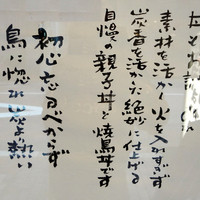 素材を活かし火を入れすぎず
炭香を活かした絶妙に仕上げる
自慢の親子丼と焼鳥丼です
初心忘るべからず
鳥に惚れ